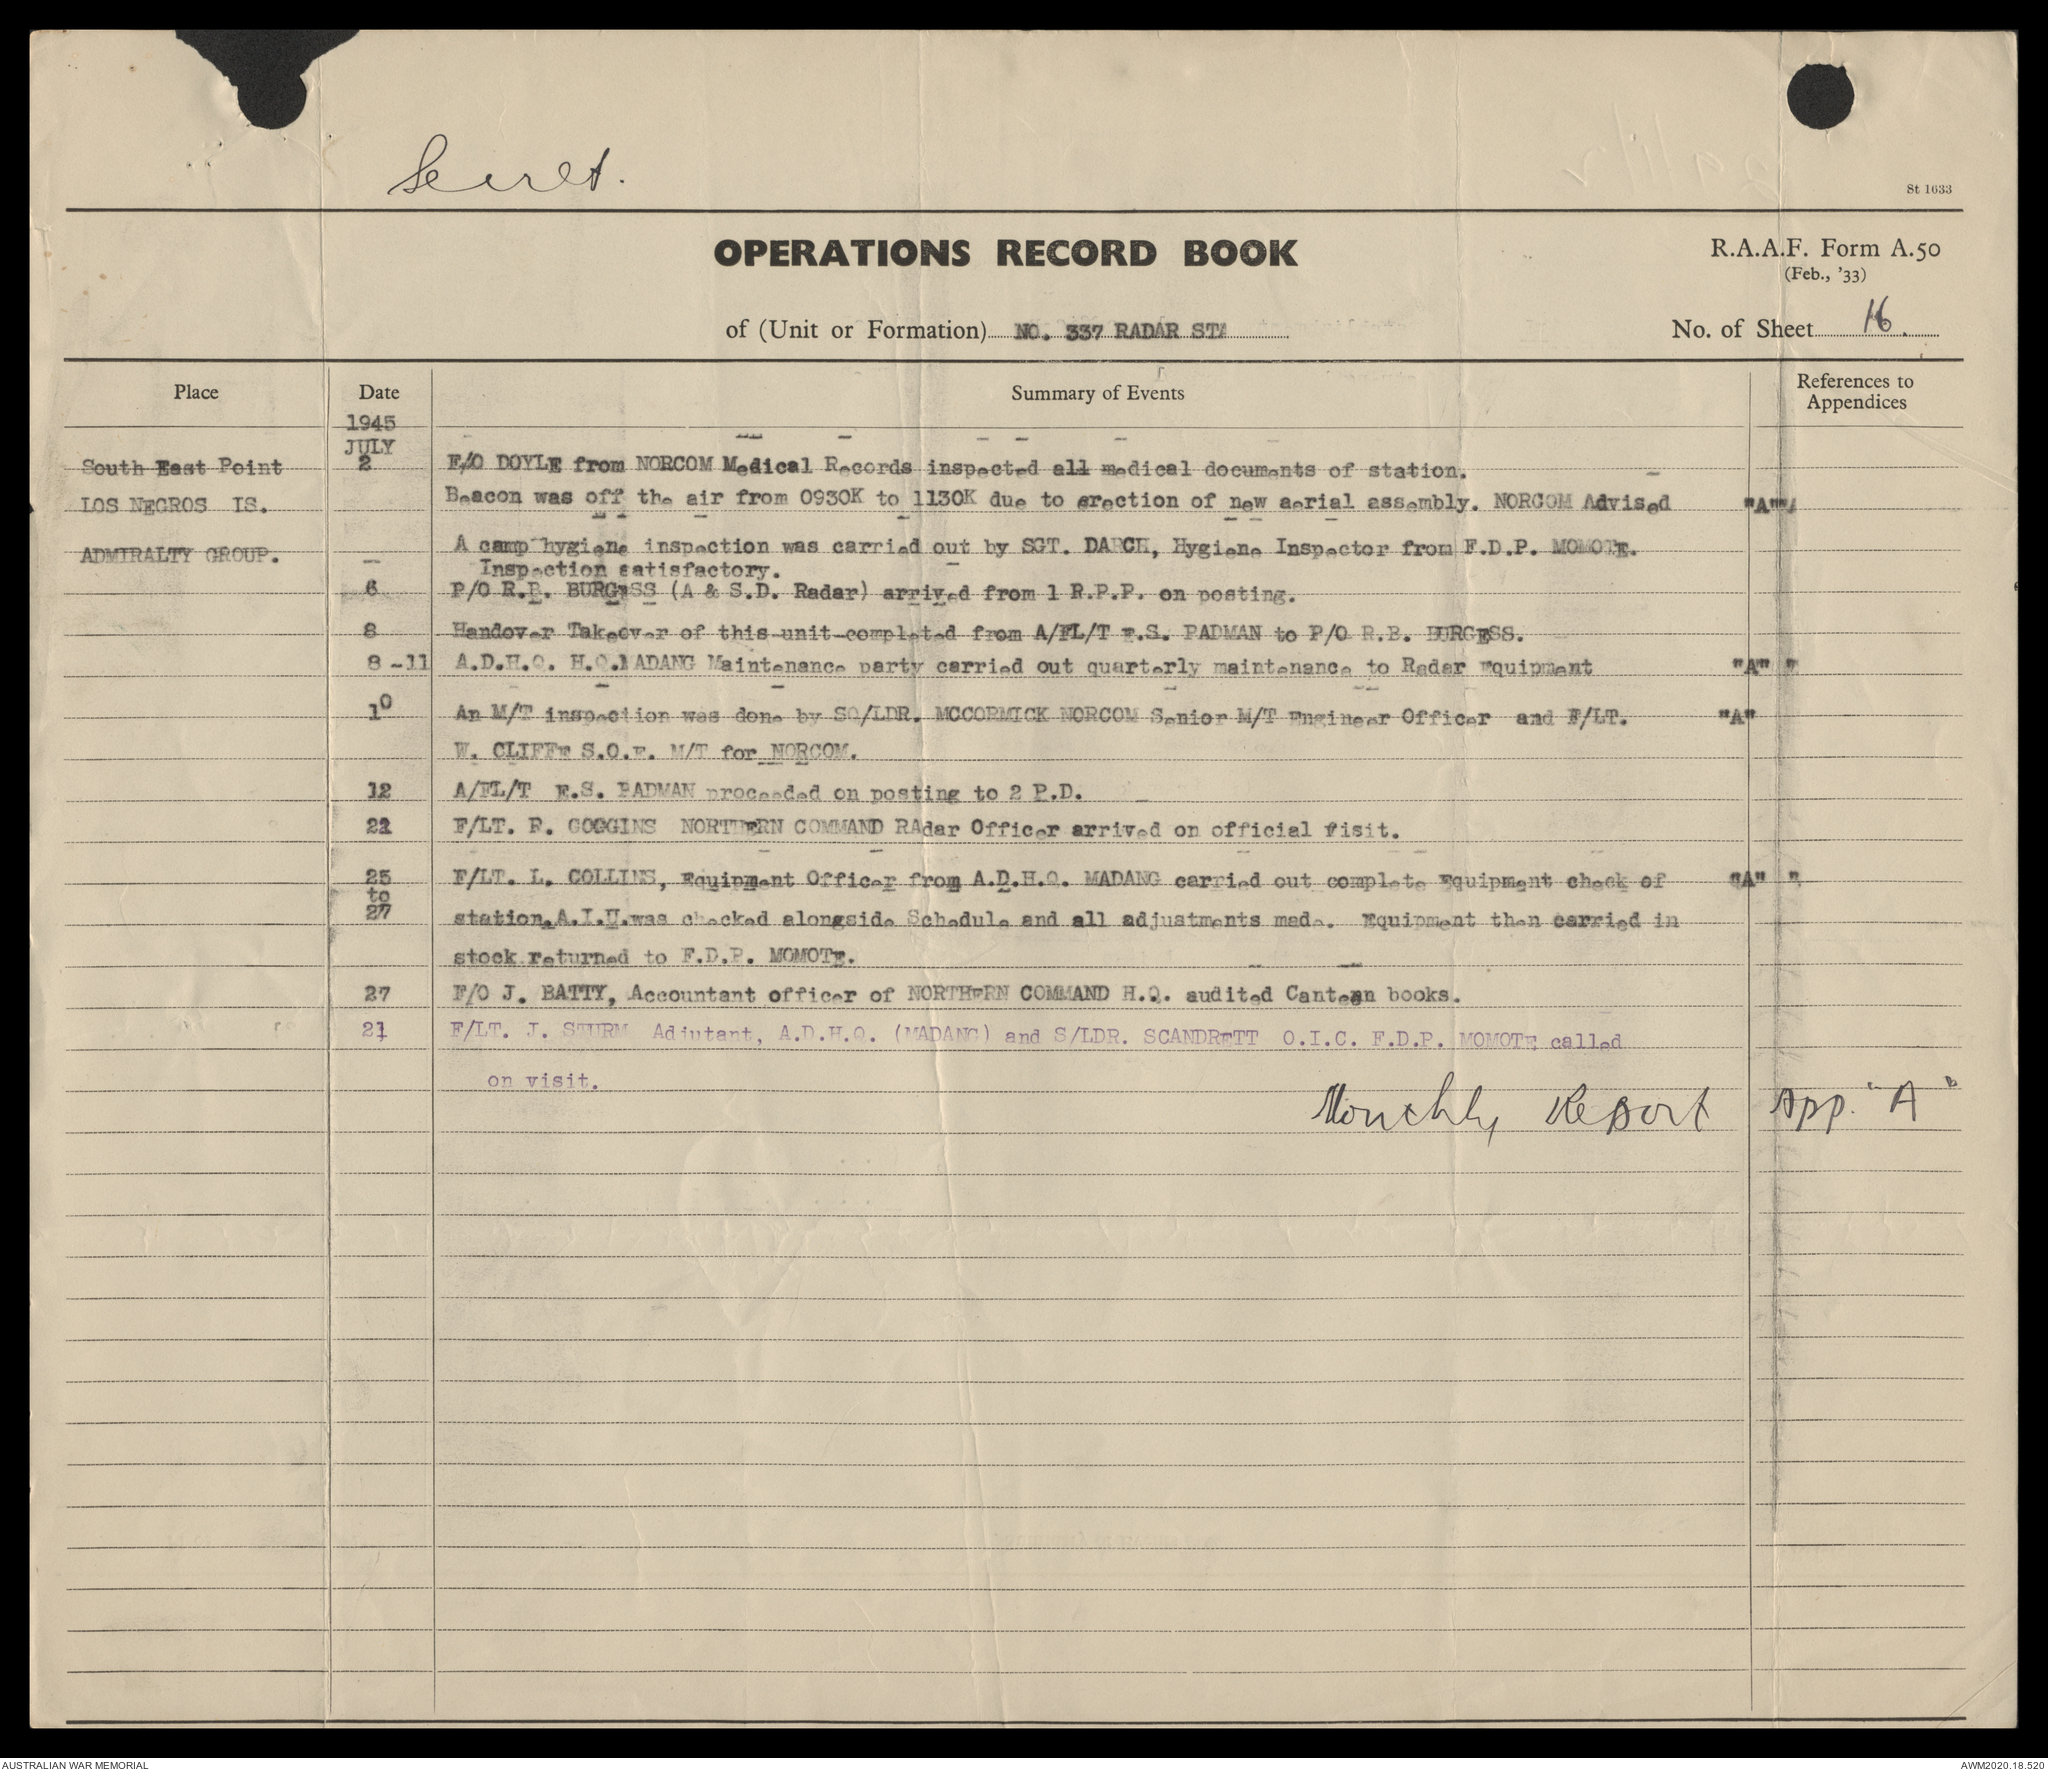 Secret.
St 1633
OPERATIONS RECORD BOOK
R.A.A.F. Form A.50
(Feb., '33)
of (Unit or Formation) NO. 337 RADAR STA
No. of Sheet 16.
Place Date Summary of Events References to Appendices
1945
JULY
South East Point 2 F/O DOYLE from NORCOM Medical Records inspected all medical documents of station.
LOS NEGROS IS. Beacon was off the air from 0930K to 1130K due to erection of new aerial assembly. NORCOM Advised "A"
ADMIRALTY GROUP. – A camp hygiene inspection was carried out by SGT. DARCH, Hygiene Inspector from F.D.P. MOMOTE.
Inspection satisfactory.
6 P/O R.B. BURGESS (A & S.D. Radar) arrived from 1 R.P.P. on posting.
8 Handover Takeover of this unit completed from A/FL/T E.S. PADMAN to P/O R.B. BURGESS.
8 -11 A.D.H.Q. H.Q.MADANG Maintenance party carried out quarterly maintenance to Radar Equipment "A" "
10 An M/T inspection was done by SQ/LDR. MCCORMICK NORCOM Senior M/T Engineer Officer and F/LT. "A"
W. CLIFFE S.O.E. M/T for NORCOM.
12 A/FL/T E.S. PADMAN proceeded on posting to 2 P.D.
22 F/LT. F. GOGGINS NORTHERN COMMAND RAdar Officer arrived on official visit.
25 F/LT. L. COLLINS, Equipment Officer from A.D.H.Q. MADANG carried out complete Equipment check of "A" "
to
27 station.A.I.U.was checked alongside Schedule and all adjustments made. Equipment then carried in
stock returned to F.D.P. MOMOTE.
27 F/O J. BATTY, Accountant officer of NORTHERN COMMAND H.Q. audited Canteen books.
21 F/LT. J. STURM Adjutant, A.D.H.Q. (MADANG) and S/LDR. SCANDRETT O.I.C. F.D.P. MOMOTE called
on visit.
Monthly Report App. "A"
AUSTRALIAN WAR MEMORIAL
AWM2020.18.520